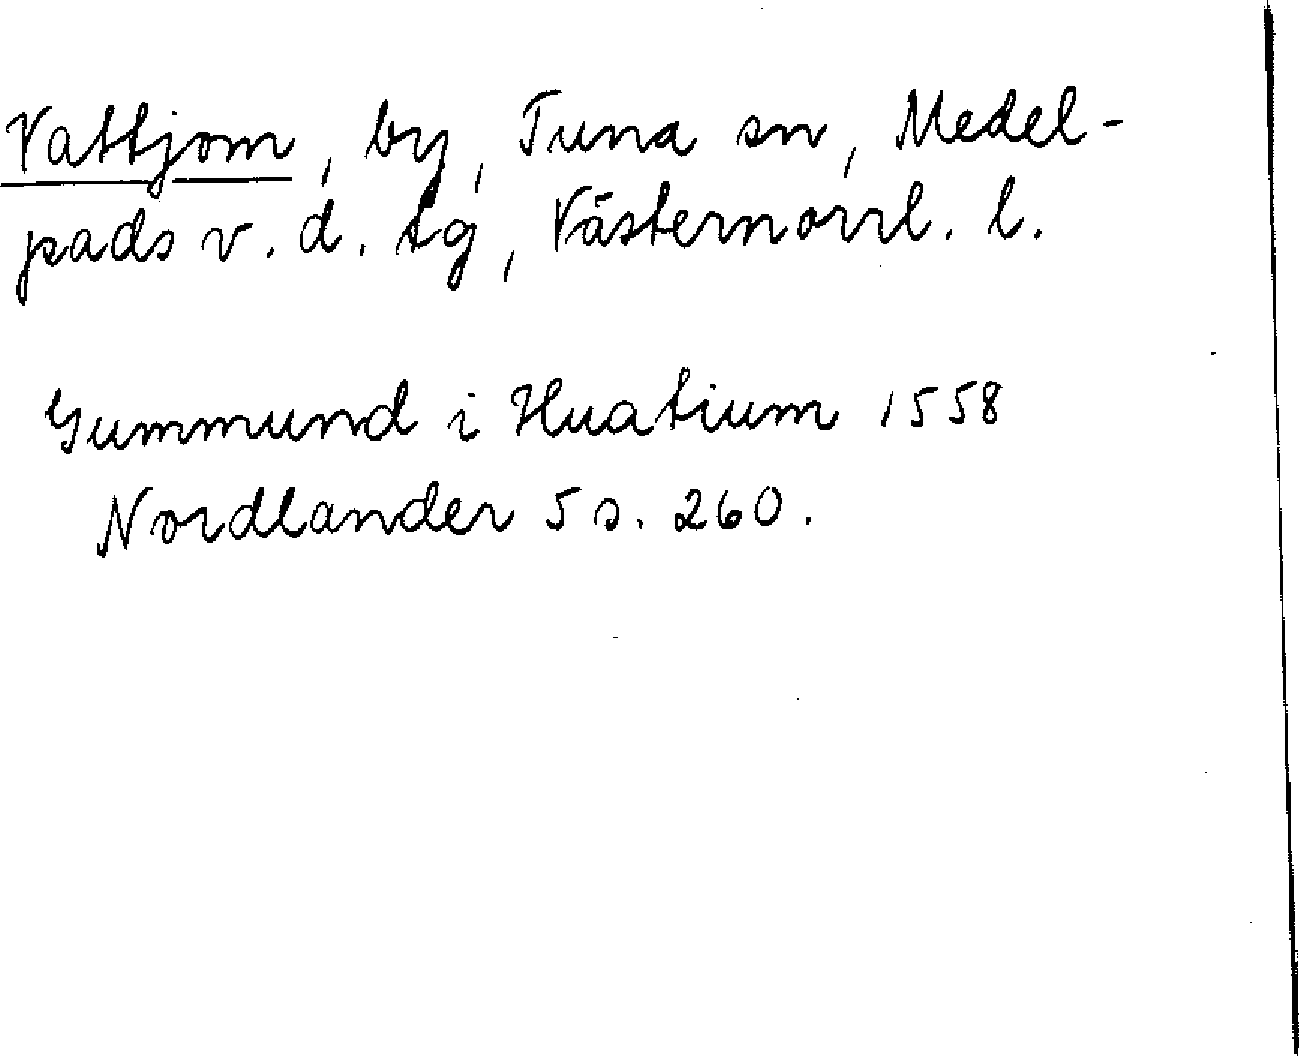 Vattjom, by, Tuna sn, Medel-
pads v. d. tg, Västernorrl. l.
Gummund i Huatium 1558
Nordlander 5 s. 260.